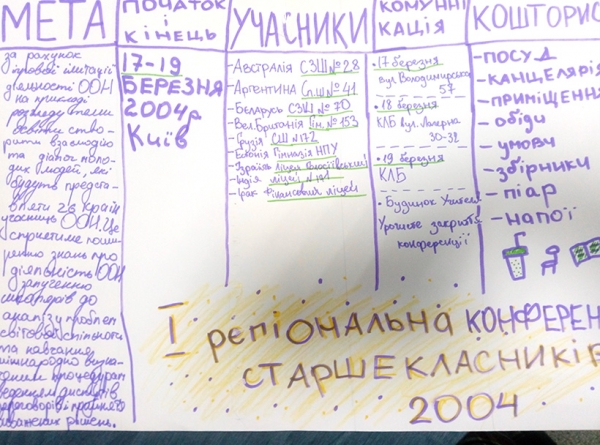 МЕТА
за рахунок
ігрової імітації
діяльності ООН
на прикладі
розгляду теми
освіти ство-
рити взаємодію
та діалог моло-
дих людей, які
будуть предста-
вляти 2в країн
учасниць ООН. Це
сприятиме поши-
ренню знань про
діяльність ООН
залученню
школярів до
аналізу проблем
світової спільноти
та навчання
міжнародно
процедурам
ведення дискусій
переговорів і прийняття
важених рішень.
ПОЧАТОК
І
КІНЕЦЬ
17-19
БЕРЕЗНЯ
2004р
Київ
УЧАСНИКИ
-Австралія СЗШ №28
-Аргентина Сп.ш №41
-Беларусь СЗКІ № 70
-Вел.Британія Гім. №153
-Грузія СШ №172
-Естонія Гімназія НПУ
-Ізраїль Ліцей
-Індія ліцей №
-Ірак Фінансовий ліцей
КОМУНІ
КАЦІЯ
• 17 березня
Вул. Володимирська
57
• 18 березня
КЛБ вул.
30-32
• 19 березня
КЛБ
- Будинок Учителя
Урочисте закриття
конференції
КОШТОРИС
-ПОСУД
-КАНЦЕЛЯРІЯ
-ПРИМІЩЕННЯ
-обіди
-умови
-збірники
-піар
-напої
І регіональна КОНФЕРЕН
СТАРШЕКЛАСНИКІВ
2004